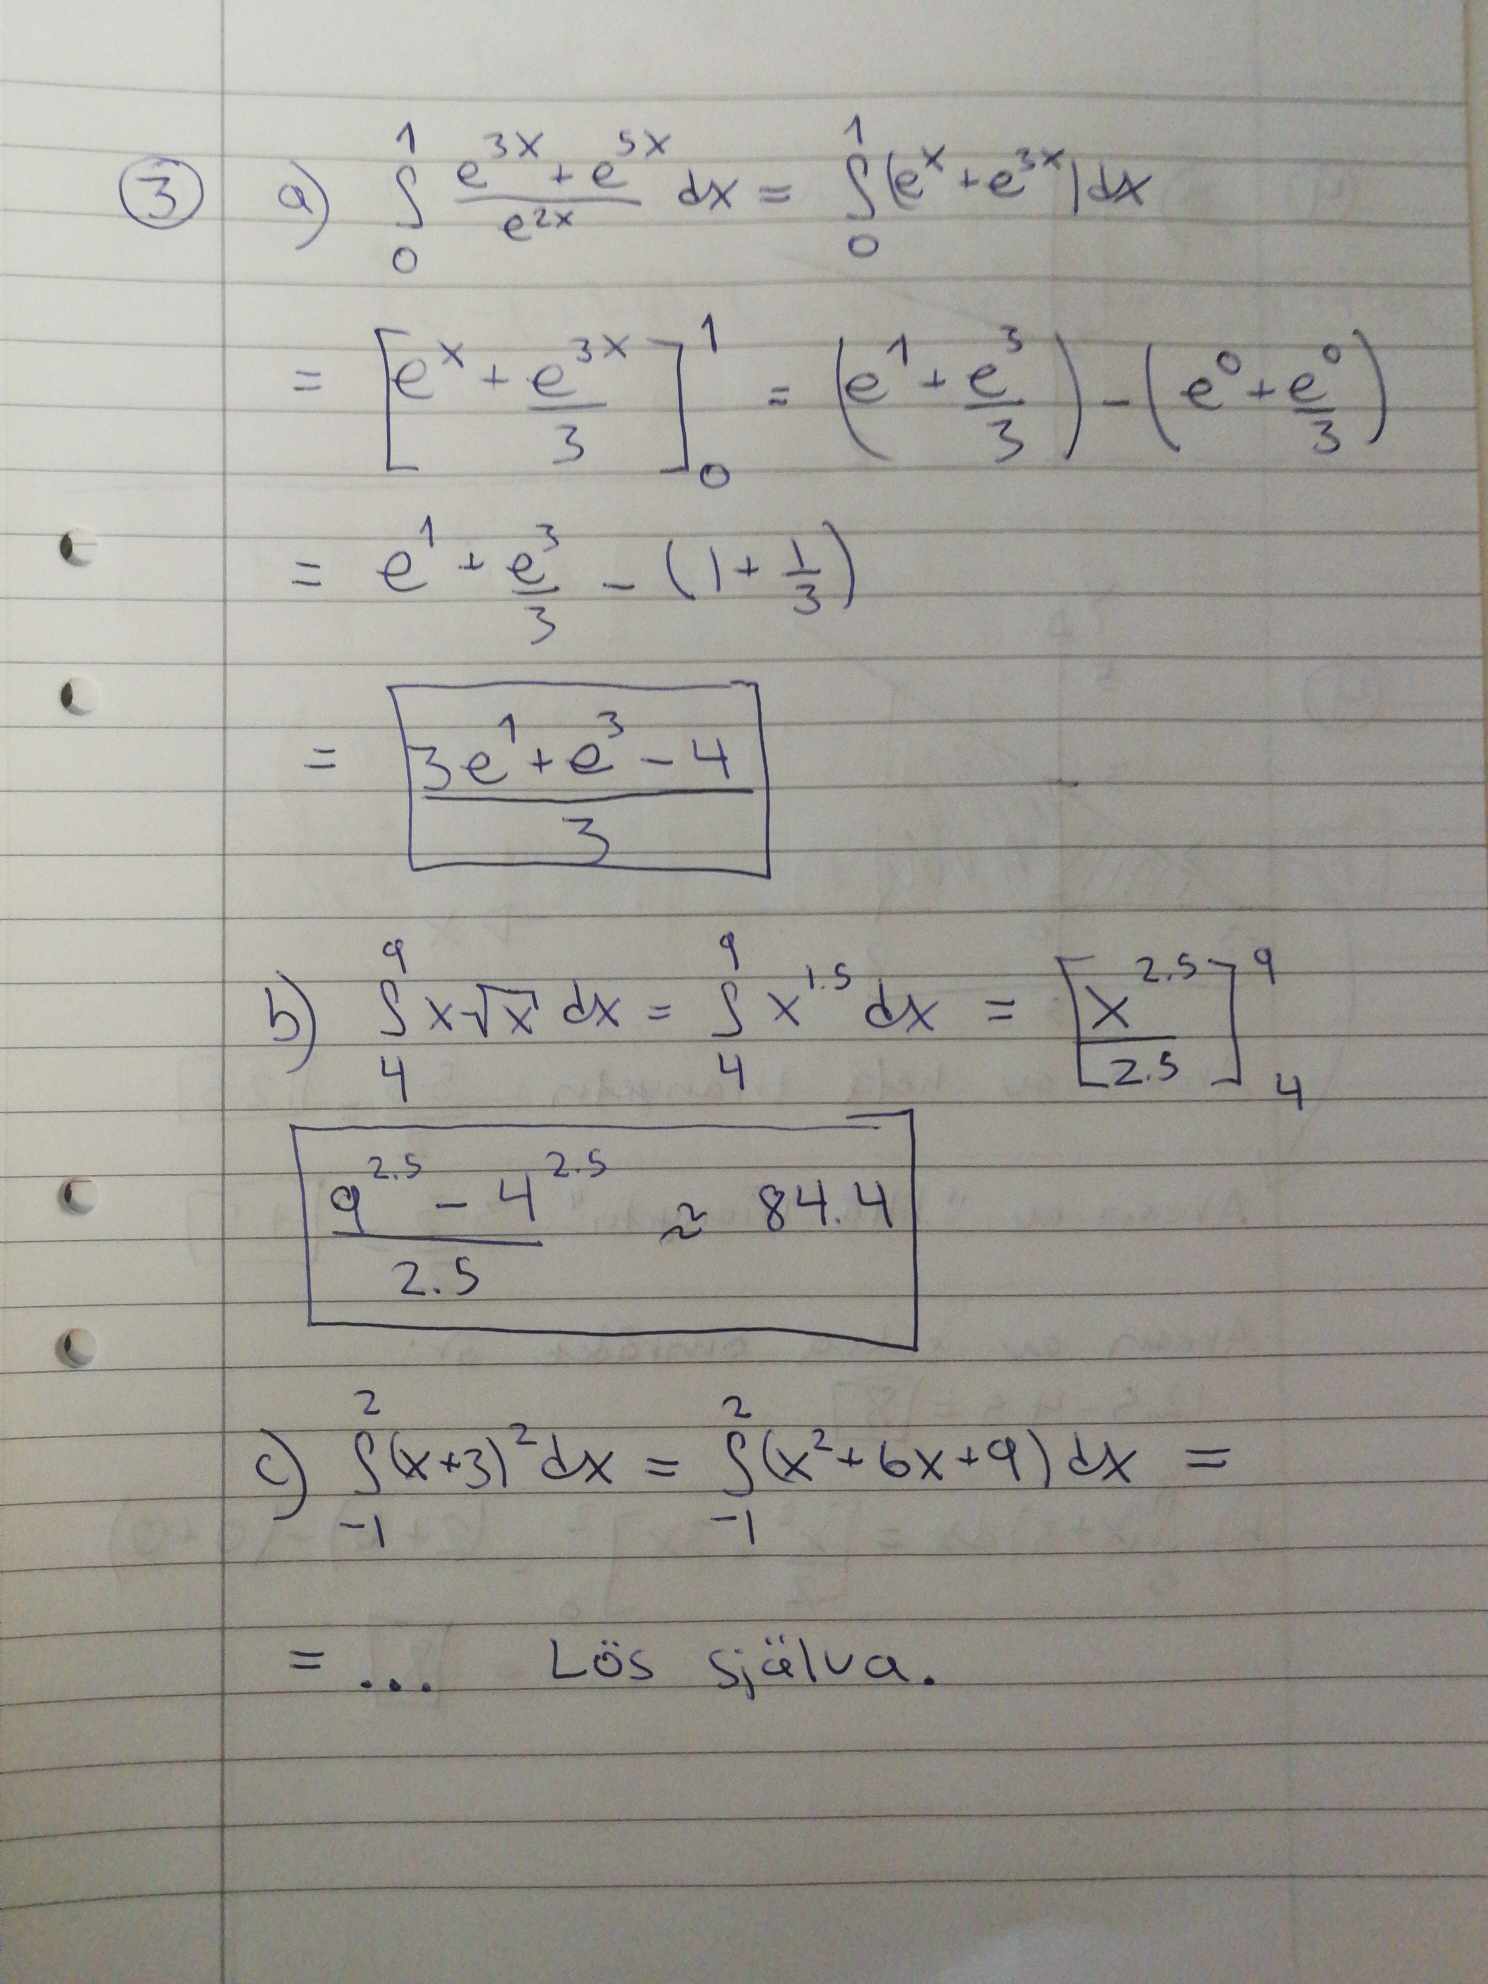 3 a) ∫₀¹ (e^{3x} + e^{5x})/e^{2x} dx = ∫₀¹ (e^x + e^{3x}) dx
= [e^x + e^{3x}/3]₀¹ = (e^1 + e^3/3) - (e^0 + e^0/3)
= e^1 + e^3/3 - (1 + 1/3)
= (3e^1 + e^3 - 4)/3
b) ∫₄⁹ x√x dx = ∫₄⁹ x^{1.5} dx = [x^{2.5}/2.5]₄⁹
(9^{2.5} - 4^{2.5})/2.5 ≈ 84.4
c) ∫₋₁² (x+3)² dx = ∫₋₁² (x² + 6x + 9) dx =
= ... Lös själva.